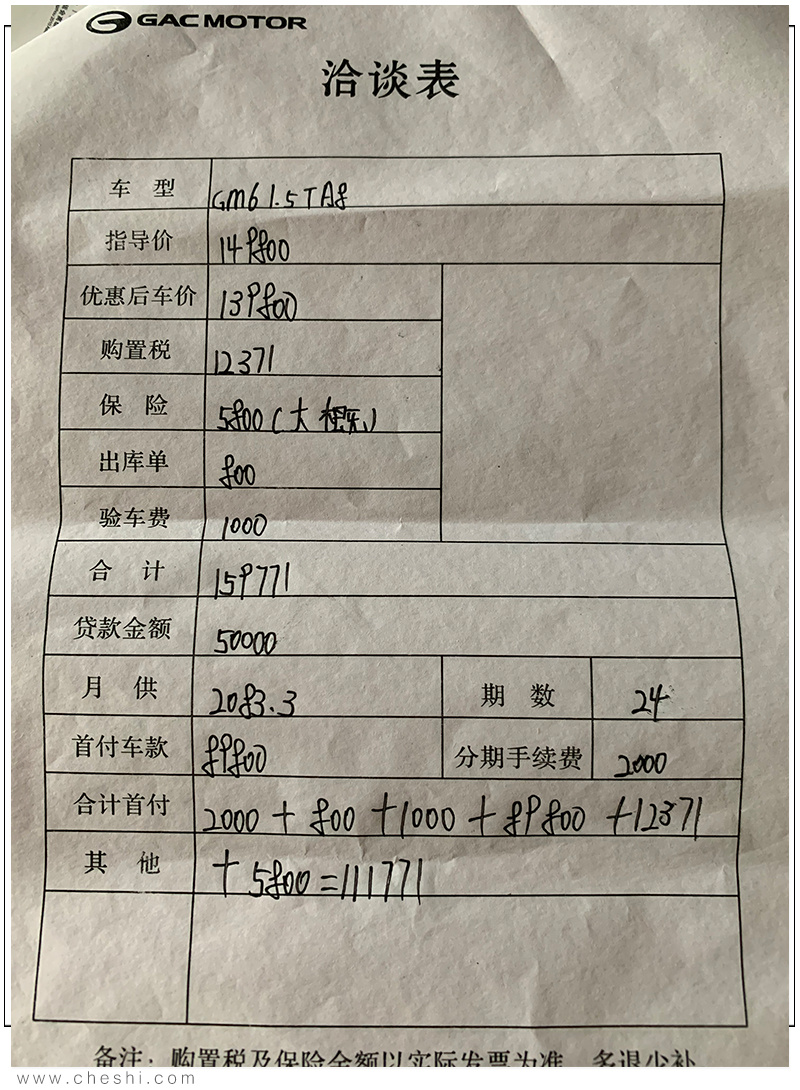 GAC MOTOR
洽谈表
车 型 GM6 1.5TA8
指导价 149800
优惠后车价 139800
购置税 12371
保 险 5800(大概)
出库单 800
验车费 1000
合 计 159771
贷款金额 50000
月 供 2083.3 期 数 24
首付车款 89800 分期手续费 2000
合计首付 2000 + 800 + 1000 + 89800 + 12371
其 他 + 5800 = 111771
备注：购置税及保险金额以实际发票为准，多退少补
www.cheshi.com